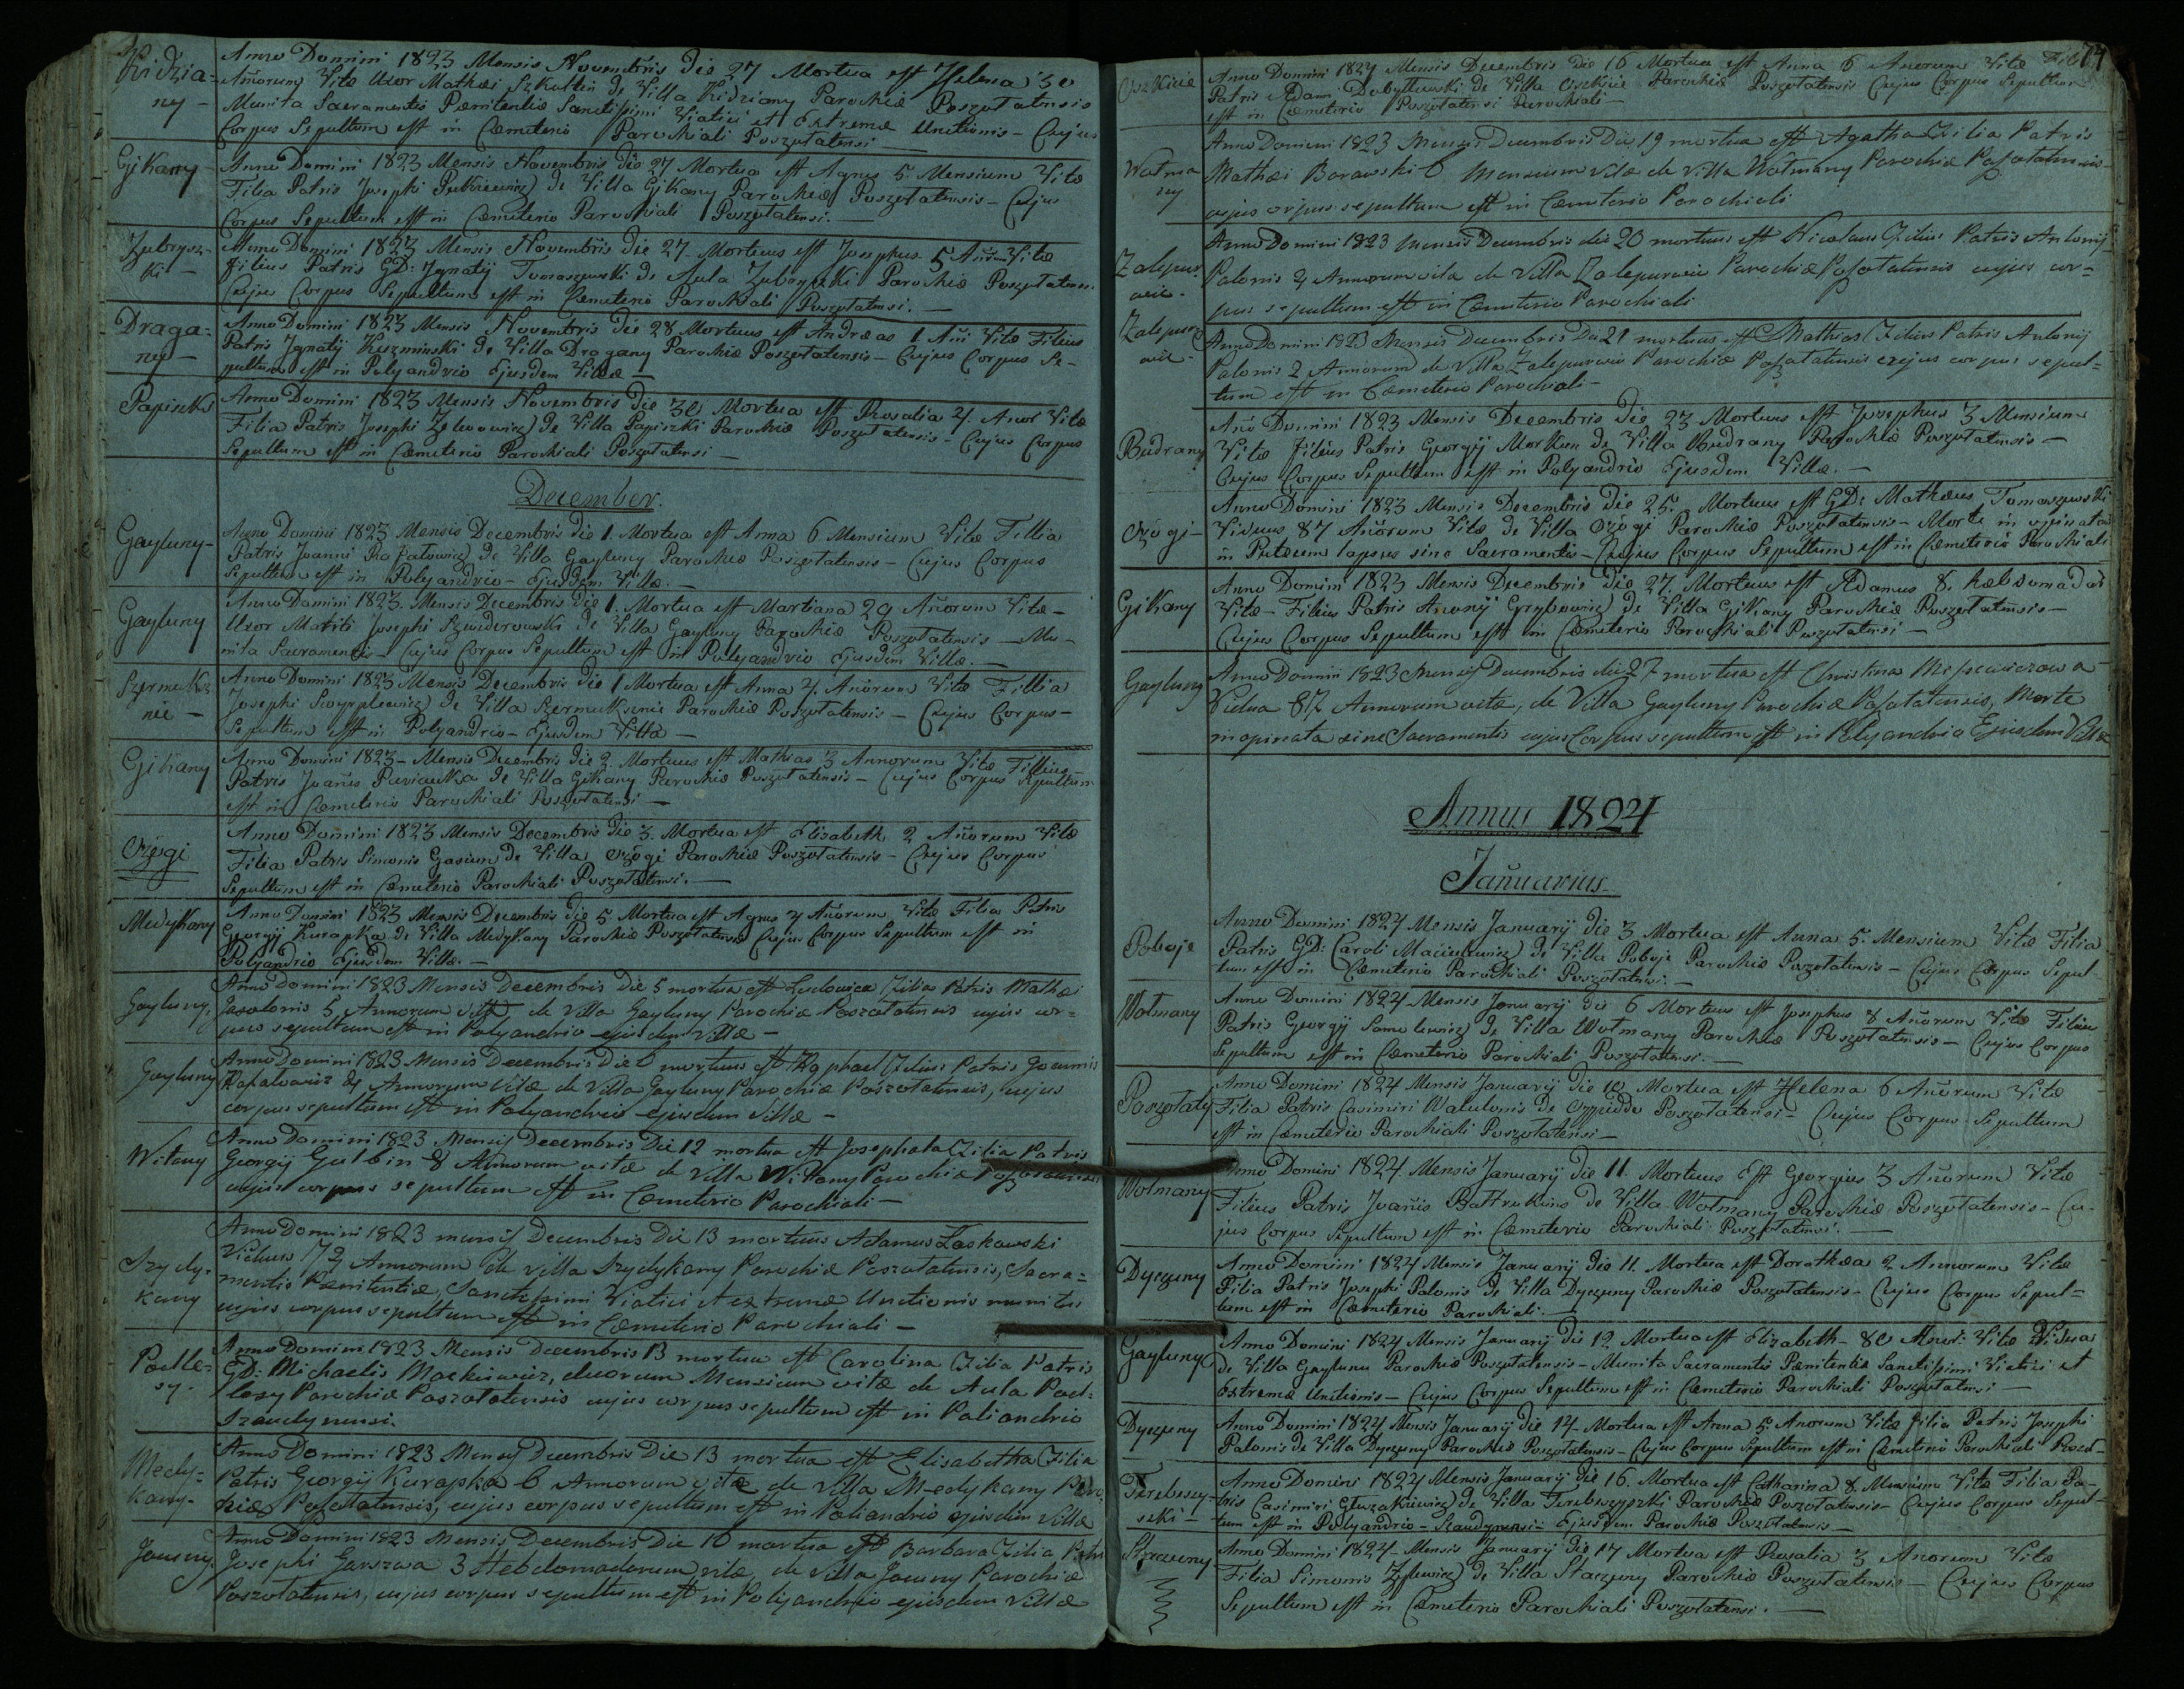 Kidzia-
ny -
Anno Domini 1823 Mensis Novembris die 27 Mortua est Helena 30
Anorum Vitæ Uxor Mathæi Szkultin de Villa Kidziany Parochiæ Poszotatensis
Munita Sacramentis Pœnitentiæ Sanctissimi Viatici et Extremæ Unctionis - Cujus
Corpus Sepultum est in Cœmeterio Parochiali Poszotatensi
Gikany
Anno Domini 1823 Mensis Novembris die 27 Mortua est Agnes 5 Mensium Vitæ
Filia Patris Josephi de Villa Gikany Parochiæ Poszotatensis - Cujus
Corpus Sepultum est in Cœmeterio Parochiali Poszotatensi. -
Zubrysz-
ki -
Anno Domini 1823 Mensis Novembris die 27 Mortuus est Josephus 5 Anorum Vitæ
Filius Patris GD: Ignatij de Aula Zubryszki Parochiæ Poszotatensis
Cujus Corpus Sepultum est in Cœmeterio Parochiali Poszotatensi. -
Draga-
ny -
Anno Domini 1823 Mensis Novembris die 28 Mortuus est Andreas 1 Ani Vitæ Filius
Patris Ignatij Kuzminski de Villa Dragany Parochiæ Poszotatensis - Cujus Corpus Se-
pultum est in Polyandrio Ejusdem Villæ -
Papiszki
Anno Domini 1823 Mensis Novembris die 30 Mortua est Rosalia 4 Anor Vitæ
Filia Patris Josephi de Villa Papiszki Parochiæ Poszotatensis - Cujus Corpus
Sepultum est in Cœmeterio Parochiali Poszotatensi -
December.
Gayluny -
Anno Domini 1823 Mensis Decembris die 1. Mortua est Anna 6 Mensium Vitæ Fillia
Patris Joanni Rafatowicz de Villa Gayluny Parochiæ Poszotatensis - Cujus Corpus
Sepultum est in Polyandrio - Ejusdem Villæ. -
Gayluny
Anno Domini 1823. Mensis Decembris die 1. Mortua est Martiana 29 Anorum Vitæ -
Uxor Mariti Josephi de Villa Gayluny Parochiæ Poszotatensis - Mu-
nita Sacramentis - Cujus Corpus Sepultum est in Polyandrio Ejusdem Villæ. -
Szermuksz
nie -
Anno Domini 1823 Mensis Decembris die 1 Mortua est Anna 4 Anorum Vitæ Fillia
Josephi de Villa Szermuksznie Parochiæ Poszotatensis - Cujus Corpus -
Sepultum est in Polyandrio - Ejusdem Villæ -
Gikany
Anno Domini 1823 - Mensis Decembris die 2. Mortuus est Mathias 3 Annorum Vitæ Fillius -
Patris Joanis de Villa Gikany Parochiæ Poszotatensis - Cujus Corpus Sepultum
est in Cœmeterio Parochiali Poszotatensi -
Ożogi
Anno Domini 1823 Mensis Decembris die 3. Mortua est Elisabeth 2 Anorum Vitæ
Filia Patris Simonis Gasiun de Villa Ożogi Parochiæ Poszotatensis - Cujus Corpus
Sepultum est in Cœmeterio Parochiali Poszotatensi. -
Medykany
Anno Domini 1823 Mensis Decembris die 5. Mortua est Agnes 4 Anorum Vitæ Filia Patris
Georgij Kurapka de Villa Medykany Parochiæ Poszotatensis Cujus Corpus Sepultum est in
Polyandrio Ejusdem Villæ. -
Gayluny
Anno Domini 1823 Mensis Decembris die 5 mortua est Ludovica Filia Patris Mathæi
5 Annorum vitæ, de Villa Gayluny Parochiæ Poszotatensis cujus cor=
pus sepultum est in Polyandrio ejusdem Villæ -
Gayluny
Anno Domini 1823 Mensis Decembris Die 6 mortuus est Raphael Filius Patris Joannis
Rafatowicz Annorum vitæ de Villa Gayluny Parochiæ Poszotatensis, cujus
corpus sepultum est in Polyandrio ejusdem Villæ -
Witany
Anno Domini 1823 Mensis Decembris Die 12 mortua est Josephata Filia Patris
Georgij Gulbin 8 Annorum vitæ de Villa Witany Parochiæ Poszotatensis
cujus corpus sepultum est in Cœmeterio Parochiali -
Szydy-
kany
Anno Domini 1823 mensis Decembris Die 13 mortuus Adamus Laskowski
Viduus 72 Annorum de Villa Szydykany Parochiæ Poszotatensis, Sacra=
mentis Pœnitentiæ, Sanctissimi Viatici et extremæ Unctionis munitus
cujus corpus sepultum est in Cœmeterio Parochiali -
Podle-
sy.
Anno Domini 1823 Mensis Decembris 13 mortua est Carolina Filia Patris
GD: Michaelis Mackiewicz, duorum Mensium vitæ de Aula Pod-
lesy Parochiæ Poszotatensis cujus corpus sepultum est in Poliandrio
Szaudynensi.
Medy-
kany -
Anno Domini 1823 Mensis Decembris Die 13 mortua est Elisabetha Filia
Patris Georgij Kurapka 6 Annorum vitæ de Villa Medykany Paro-
chiæ Poszotatensis, cujus corpus sepultum est in Poliandrio ejusdem Villæ
Jauny.
Anno Domini 1823 Mensis Decembris Die 16 mortua est Barbara Filia Patris
Josephi Garszwa 3 Hebdomadarum vitæ, de Villa Jauny Parochiæ
Poszotatensis, cujus corpus sepultum est in Poliandrio ejusdem Villæ
74
Oszkinie
Anno Domini 1823 Mensis Decembris die 16 Mortua est Anna 6 Anorum Vitæ Filia
Patris Adami de Villa Oszkinie Parochiæ Poszotatensis Cujus Corpus Sepultum
est in Cœmeterio Poszotatensi Parochiali -
Wotma
ny
Anno Domini 1823 Mensis Decembris Die 19 mortua est Agatha Filia Patris
Mathæi Borowski 6 Mensium vitæ de Villa Wotmany Parochiæ Poszotatensis
cujus corpus sepultum est in Cœmeterio Parochiali
Zalepur
wie.
Anno Domini 1823 mensis Decembris die 20 mortuus est Nicolaus Filius Patris Antonij
Palonis 4 Annorum vitæ de Villa Zalepurwie Parochiæ Poszotatensis cujus cor=
pus sepultum est in Cœmeterio Parochiali
Zalepur
wie.
Anno Domini 1823 Mensis Decembris Die 21 mortuus est Mathias Filius Patris Antonij
Palonis 2 Annorum de Villa Zalepurwie Parochiæ Poszotatensis cujus corpus sepul=
tum est in Cœmeterio Parochiali -
Budrany
Ano Domini 1823 Mensis Decembris die 23 Mortuus est Josephus 3 Mensium
Vitæ Filius Patris Georgij Morkun de Villa Budrany Parochiæ Poszotatensis -
Cujus Corpus Sepultum est in Polyandrio Ejusdem Villæ. -
Ożogi -
Anno Domini 1823 Mensis Decembris die 25. Mortuus est GD: Mathæus Tomaszewski
Viduus 87 Anorum Vitæ de Villa Ożogi Parochiæ Poszotatensis - Morte inopinata
in Puteum lapsus sine Sacramentis - Cujus Corpus Sepultum est in Cœmeterio Parochiali
Gikany
Anno Domini 1823 Mensis Decembris die 27 Mortuus est Adamus 8. hebdomadar
Vitæ - Filius Patris Antonij Grybowicz de Villa Gikany Parochiæ Poszotatensis -
Cujus Corpus Sepultum est in Cœmeterio Parochiali Poszotatensi -
Gayluny
Anno Domini 1823 Mensis Decembris die 27 mortua est Christina
Vidua 87 Annorum vitæ, de Villa Gayluny Parochiæ Poszotatensis, Morte
inopinata sine Sacramentis cujus Corpus sepultum est in Polyandrio Ejusdem Villæ
Annus 1824
Januarius.
Poboje
Anno Domini 1824 Mensis Januarij die 3 Mortua est Anna 5. Mensium Vitæ Filia
Patris GD: Caroli Maciulewicz de Villa Poboje Parochiæ Poszotatensis - Cujus Corpus Sepul-
tum est in Cœmeterio Parochiali Poszotatensi. -
Wotmany
Anno Domini 1824 Mensis Januarij die 6 Mortuus est Josephus 8 Anorum Vitæ Filius
Patris Georgij Samulewicz de Villa Wotmany Parochiæ Poszotatensis - Cujus Corpus
Sepultum est in Cœmeterio Parochiali Poszotatensi. -
Poszotaty
Anno Domini 1824 Mensis Januarij die 10 Mortua est Helena 6 Anorum Vitæ
Filia Patris Casimiri Walulonis de Oppiddo Poszotatensi - Cujus Corpus Sepultum
est in Cœmeterio Parochiali Poszotatensi -
Wotmany
Anno Domini 1824 Mensis Januarij die 11. Mortuus est Georgius 3 Anorum Vitæ
Filius Patris Joanis de Villa Wotmany Parochiæ Poszotatensis - Cu-
jus Corpus Sepultum est in Cœmeterio Parochiali Poszotatensi. -
Dyczuny
Anno Domini 1824 Mensis Januarij die 11. Mortua est Dorothæa 2 Annorum Vitæ
Filia Patris Josephi Palonis de Villa Dyczuny Parochiæ Poszotatensis - Cujus Corpus Sepul=
tum est in Cœmeterio Parochiali. -
Gayluny
Anno Domini 1824 Mensis Januarij die 12 Mortua est Elizabeth - 80 Anor: Vitæ Vidua
de Villa Gayluny Parochiæ Poszotatensis - Munita Sacramentis Pœnitentiæ Sanctissimi Viatici et
Extremæ Unctionis - Cujus Corpus Sepultum est in Cœmeterio Parochiali Poszotatensi -
Dyczuny
Anno Domini 1824 Mensis Januarij die 14 Mortua est Anna 5. Anorum Vitæ Filia Patris Josephi
Palonis de Villa Dyczuny Parochiæ Poszotatensis - Cujus Corpus Sepultum est in Cœmeterio Parochiali
Terebeszy-
szki -
Anno Domini 1824 Mensis Januarij die 16. Mortua est Catharina 8. Mensium Vitæ Filia Pa-
tris Casimiri de Villa Parochiæ Poszotatensis - Cujus Corpus Sepul-
tum est in Polyandrio - Szaudynensi - Ejusdem Parochiæ Poszotatensis -
Staczuny
Anno Domini 1824 Mensis Januarij die 17 Mortua est Rosalia 3 Anorum Vitæ
Filia Simonis de Villa Staczuny Parochiæ Poszotatensis - Cujus Corpus
Sepultum est in Cœmeterio Parochiali Poszotatensi. -